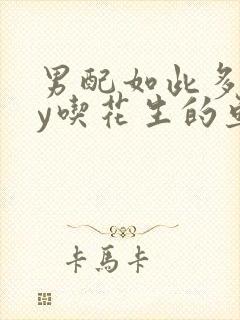 男配如此多
y喫花生的
卡馬卡